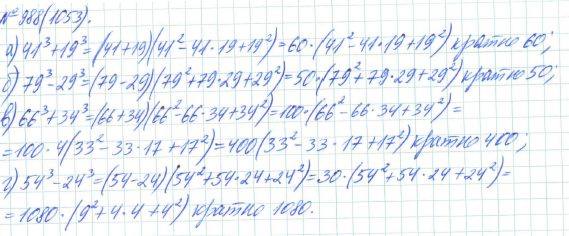 № 988(1053).
а) 41³+19³=(41+19)(41²-41·19+19²)=60·(41²-41·19+19²) кратно 60;
б) 79³-29³=(79-29)(79²+79·29+29²)=50·(79²+79·29+29²) кратно 50;
в) 66³+34³=(66+34)(66²-66·34+34²)=100·(66²-66·34+34²)=
=100·4(33²-33·17+17²)=400(33²-33·17+17²) кратно 400;
г) 54³-24³=(54-24)(54²+54·24+24²)=30·(54²+54·24+24²)=
=1080·(9²+4·4+4²) кратно 1080.